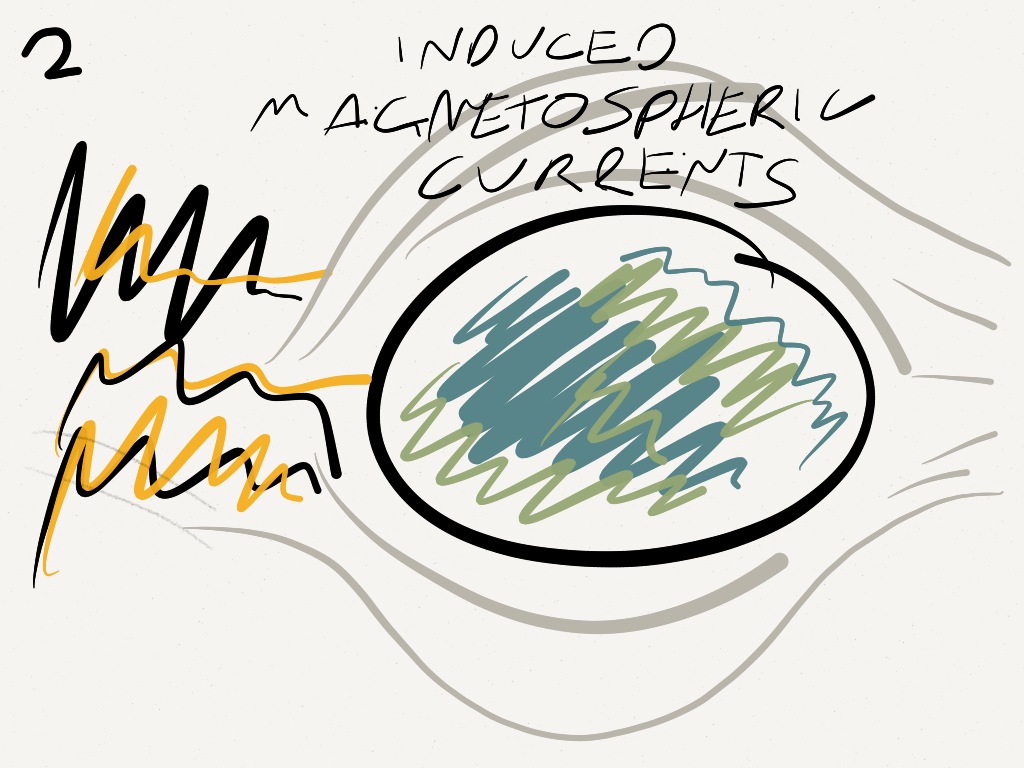 2
INDUCED
MAGNETOSPHERIC
CURRENTS